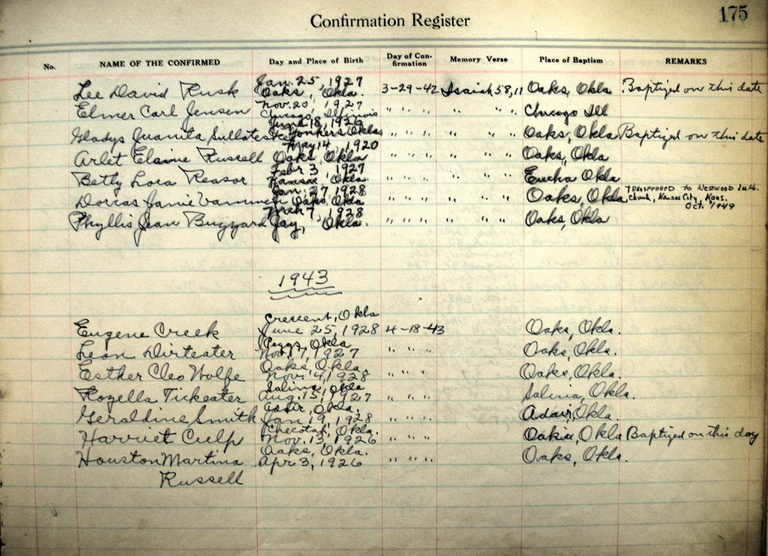 175
Confirmation Register
No. NAME OF THE CONFIRMED Day and Place of Birth Day of Con- firmation Memory Verse Place of Baptism REMARKS
Jan. 25, 1927
Lee David Rusk Oaks, Okla. 3-29-42 Isaiah 58,11 Oaks, Okla Baptized on this date
Nov. 20, 1927
Elmer Carl Jensen Chicago, Illinois " " " " " " Chicago Ill
June 18, 1926
Gladys Juanita Okla " " " " " " Oaks, Okla Baptized on this date
May 14, 1920
Arlet Elaine Russell Oaks, Okla " " " " " " Oaks, Okla
Febr 3, 1927
Betty Lora Reasor Kansas, Okla " " " " " " Eucha Okla
Jan. 27 1928
Dorcas Janie Oaks, Okla " " " " " " Oaks, Okla Transferred to Luth.
Church, Kansas City, Kans.
Oct. 1949
March 7, 1928
Phyllis Jean Buzzard Jay, Okla. " " " " " " Oaks, Okla
1943
Crescent, Okla
Eugene Creek June 25, 1928 4-18-43 Oaks, Okla.
Okla
Leon Dirteater Nov. 17, 1927 " " " Oaks, Okla.
Oaks, Okla.
Esther Cleo Wolfe Nov. 14, 1928 " " " Oaks, Okla.
Salina, Okla
Rozella Tukeater Aug. 15, 1927 " " " Salina, Okla.
Okla.
Geraldine Smith Jan. 19, 1928 " " " Adair, Okla.
Checotah, Okla.
Harriet Culp Nov. 13, 1926 " " " Oaks, Okla Baptized on this day
Oaks, Okla.
Houston Martina Apr 3, 1926 " " " Oaks, Okla.
Russell